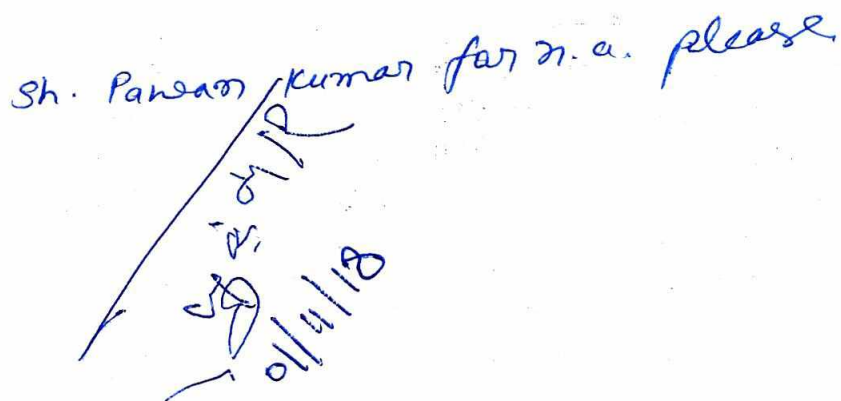 Sh. Pawan Kumar for n.a. please
01/4/18